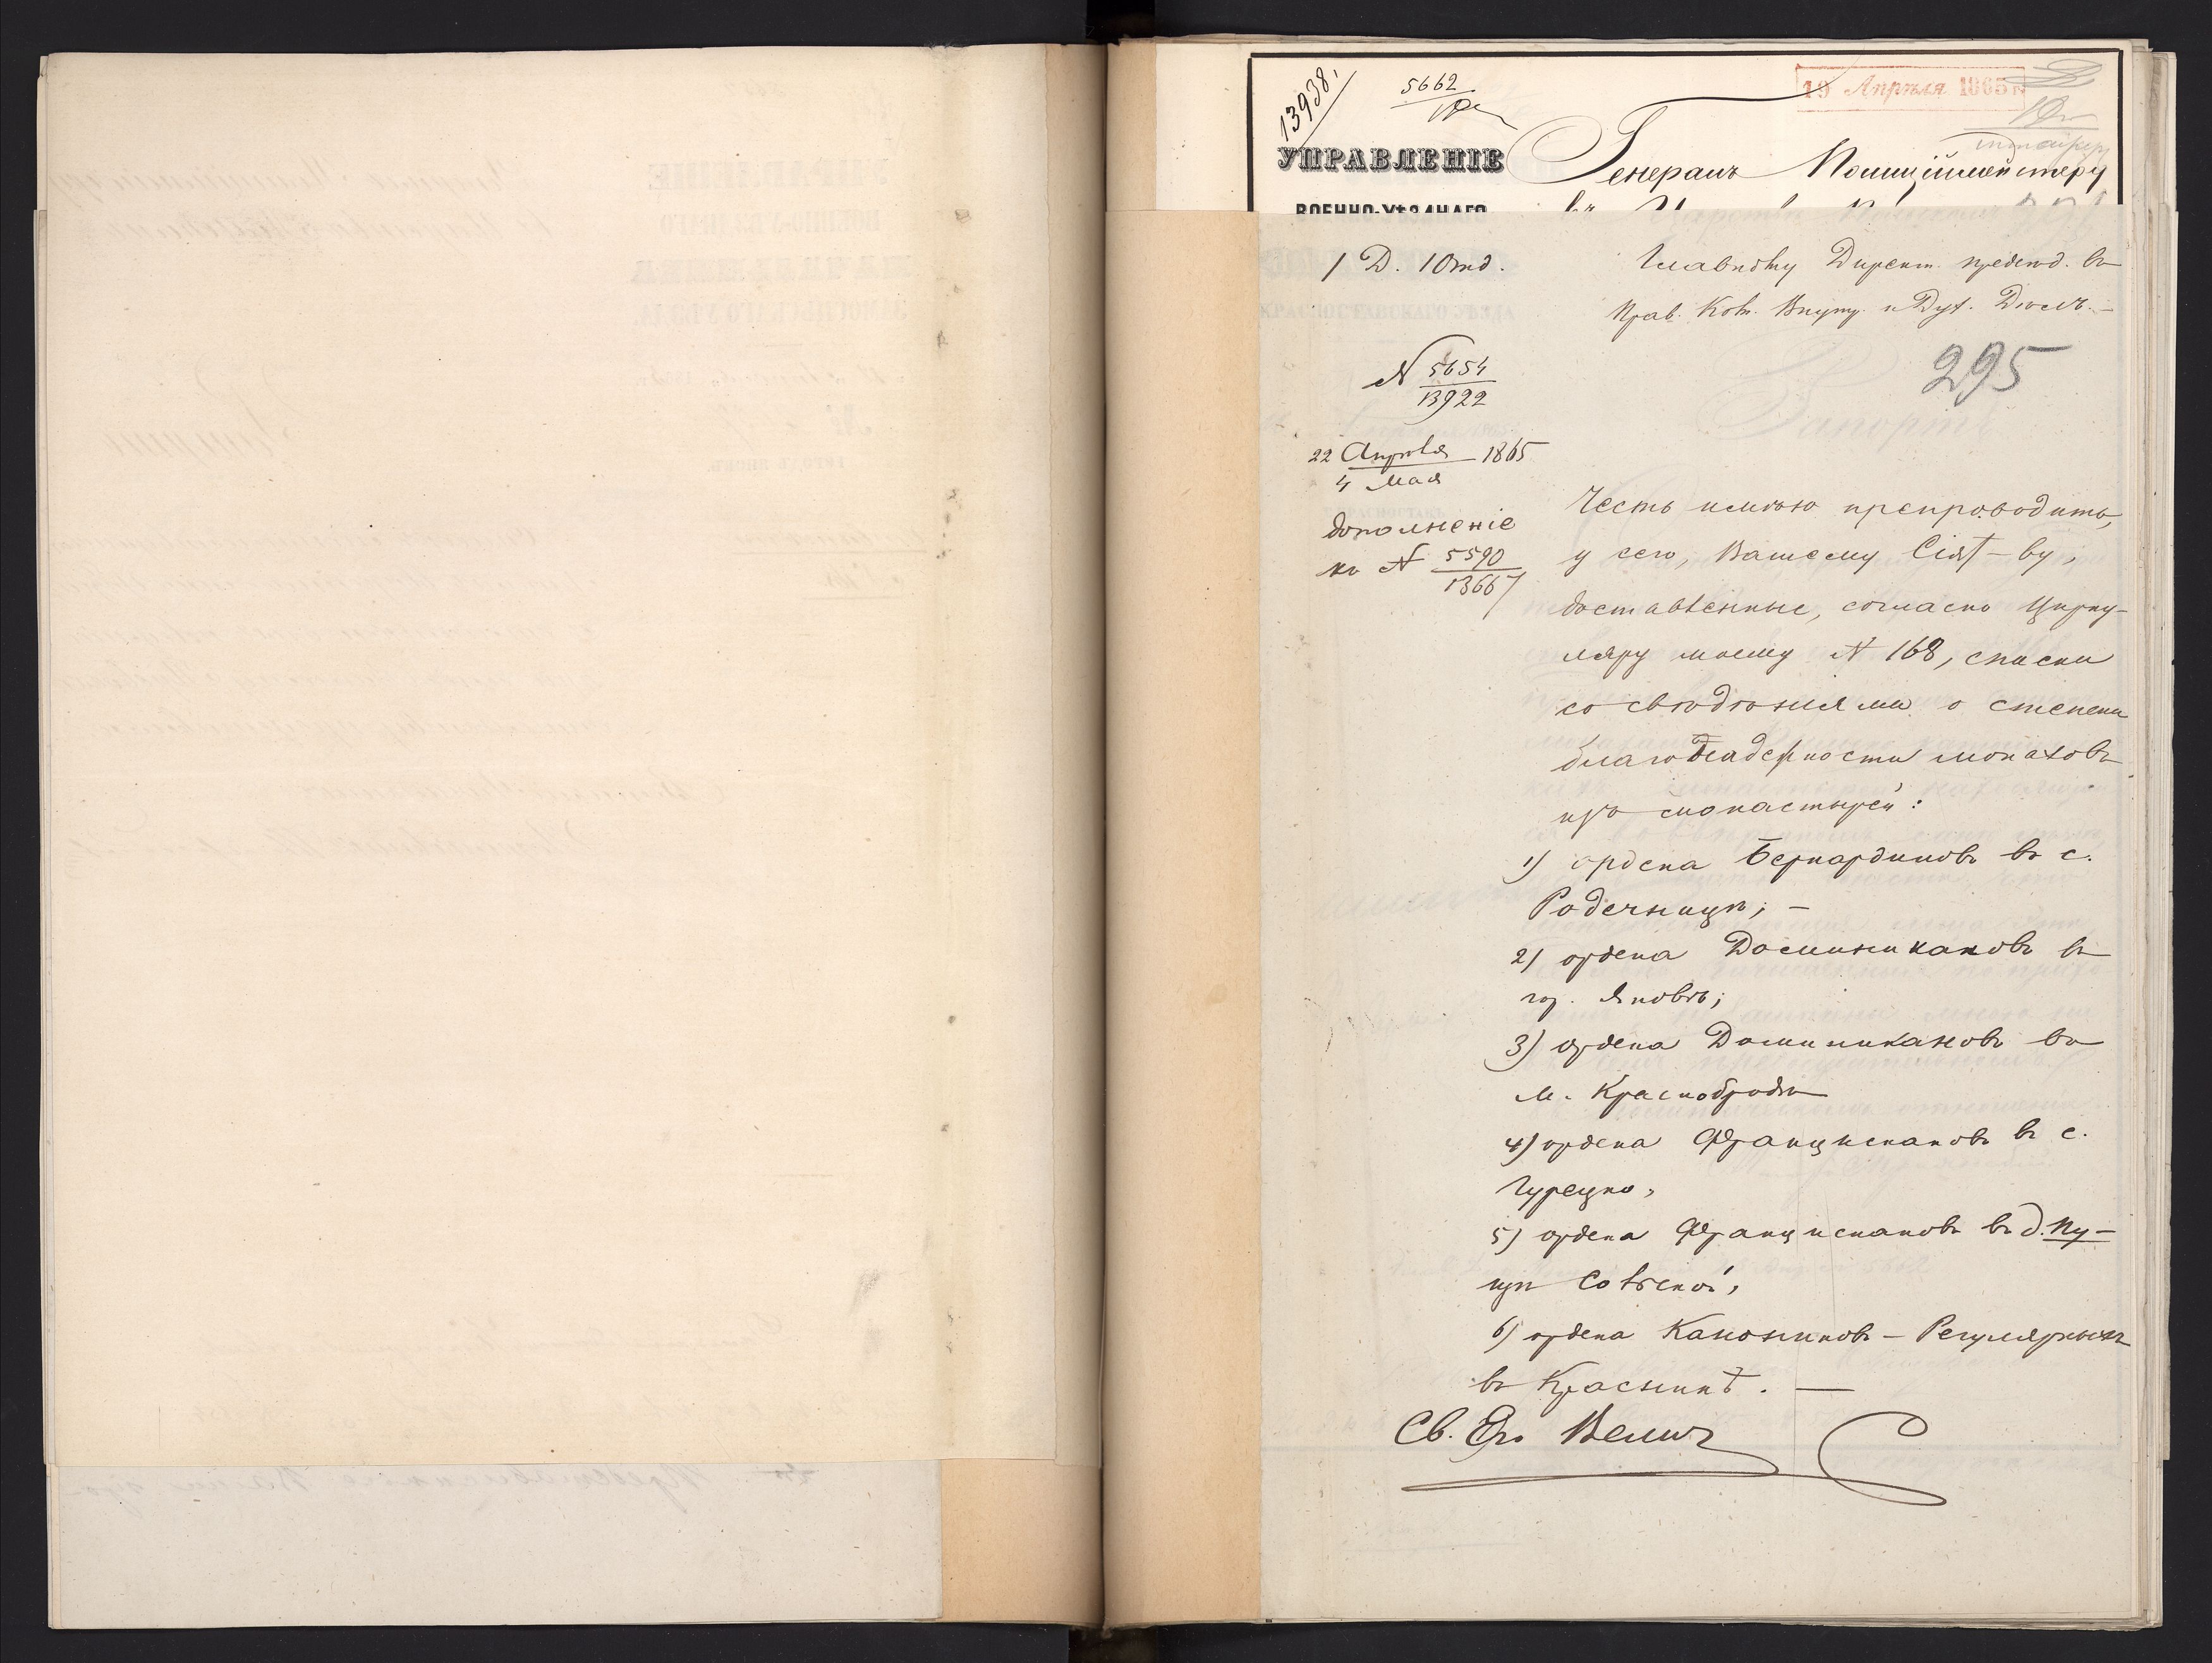 13938.
5662
19 Апрѣля 1865 г.
УПРАВЛЕНІЕ
Генералъ Полиціймейстеру
ВОЕННО-УѢЗДНАГО
1 Д. 1 Отд.
Главному Директ. предсѣд. въ
Прав. Ком. Внутр. и Дух. Дѣлъ. —
295
N 5654
13922
22 Апрѣля 1865
4 Мая
дополненіе
къ N 5590
13667
Честь имѣю препроводить,
у сего, Вашему Сіят–ву,
доставленные, согласно Цирку-
ляру моему N 168, списки
со свѣдѣніями о степени
благонадежности монаховъ
изъ монастырей:
1) ордена Бернардиновъ въ с.
Радечницѣ; —
2) ордена Доминикановъ въ
гор. Яновѣ;
3) ордена Доминикановъ въ
м. Краснобродѣ
4) ордена Францискановъ въ с.
Гурецко,
5) ордена Францискановъ въ д. Пу-
щѣ Сольской,
6) ордена Канониковъ – Регулярныхъ
въ Красникѣ. —
Св. Его Велич